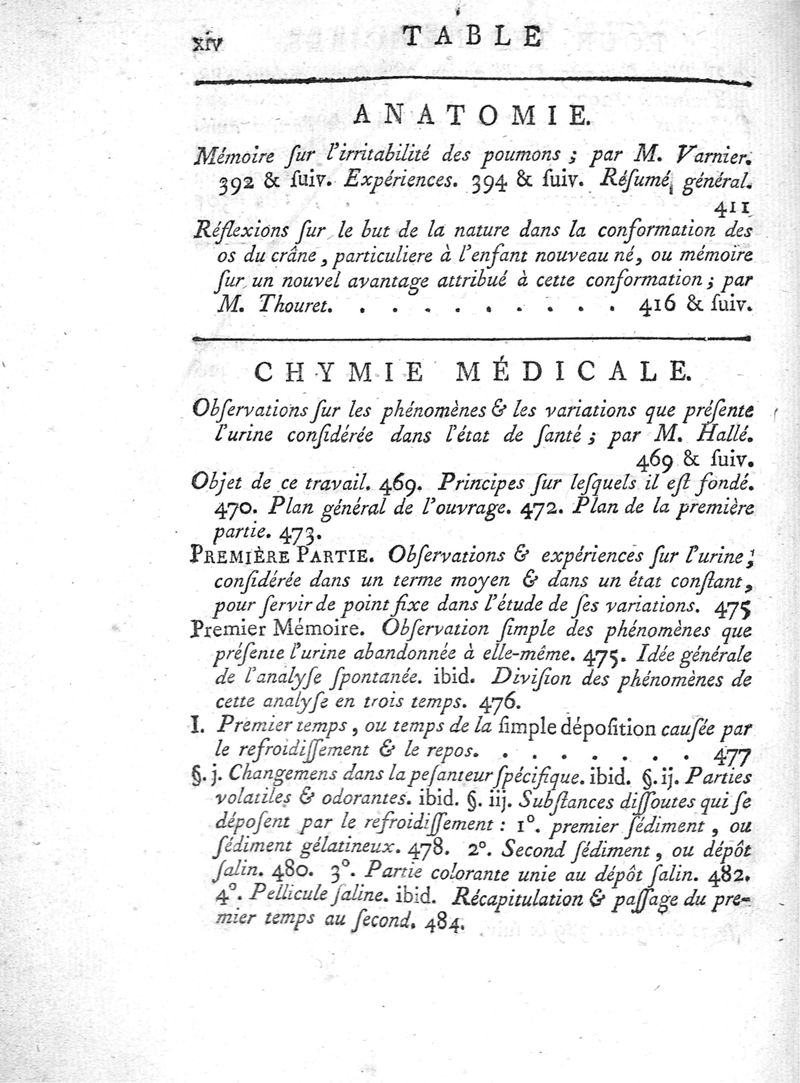 xiv TABLE
ANATOMIE.
Mémoire ſur l'irritabilité des poumons ; par M. Varnier.
392 & ſuiv. Expériences. 394 & ſuiv. Réſumé général.
411
Réflexions ſur le but de la nature dans la conformation des
os du crâne, particuliere à l'enfant nouveau né, ou mémoire
ſur un nouvel avantage attribué à cette conformation ; par
M. Thouret. . . . . . . . . . . 416 & ſuiv.
CHYMIE MÉDICALE.
Obſervations ſur les phénomènes & les variations que préſente
l'urine conſidérée dans l'état de ſanté ; par M. Hallé.
469 & ſuiv.
Objet de ce travail. 469. Principes ſur leſquels il eſt fondé.
470. Plan général de l'ouvrage. 472. Plan de la première
partie. 473.
PREMIÈRE PARTIE. Obſervations & expériences ſur l'urine,
conſidérée dans un terme moyen & dans un état conſtant,
pour ſervir de point fixe dans l'étude de ſes variations. 475
Premier Mémoire. Obſervation ſimple des phénomènes que
préſente l'urine abandonnée à elle-même. 475. Idée générale
de l'analyſe ſpontanée. ibid. Diviſion des phénomènes de
cette analyſe en trois temps. 476.
I. Premier temps, ou temps de la ſimple dépoſition cauſée par
le refroidiſſement & le repos. . . . . . . . 477
§. j. Changemens dans la peſanteur ſpécifique. ibid. §. ij. Parties
volatiles & odorantes. ibid. §. iij. Subſtances diſſoutes qui ſe
dépoſent par le refroidiſſement : 1°. premier ſédiment, ou
ſédiment gélatineux. 478. 2°. Second ſédiment, ou dépôt
ſalin. 480. 3°. Partie colorante unie au dépôt ſalin. 482.
4°. Pellicule ſaline. ibid. Récapitulation & paſſage du pre-
mier temps au ſecond. 484.